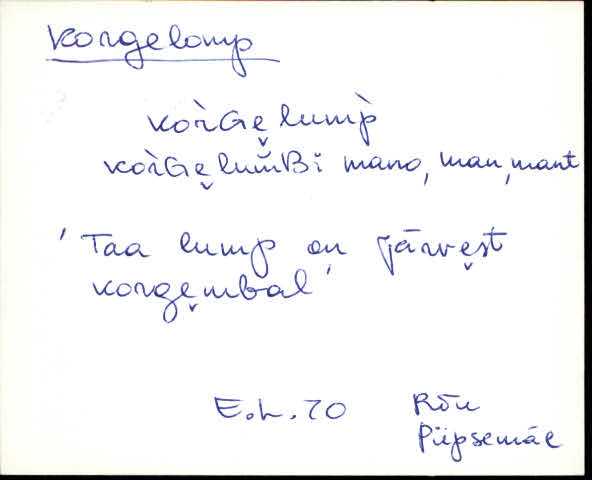 Korgelomp
kor̀Ge̬ lump̀
kor̀Ge̬ lum̆Bi mano, man, mant
'Taa lump oņ järve̬st
korge̬mbal'
E.L. 70 Rõu
Piipsemäe